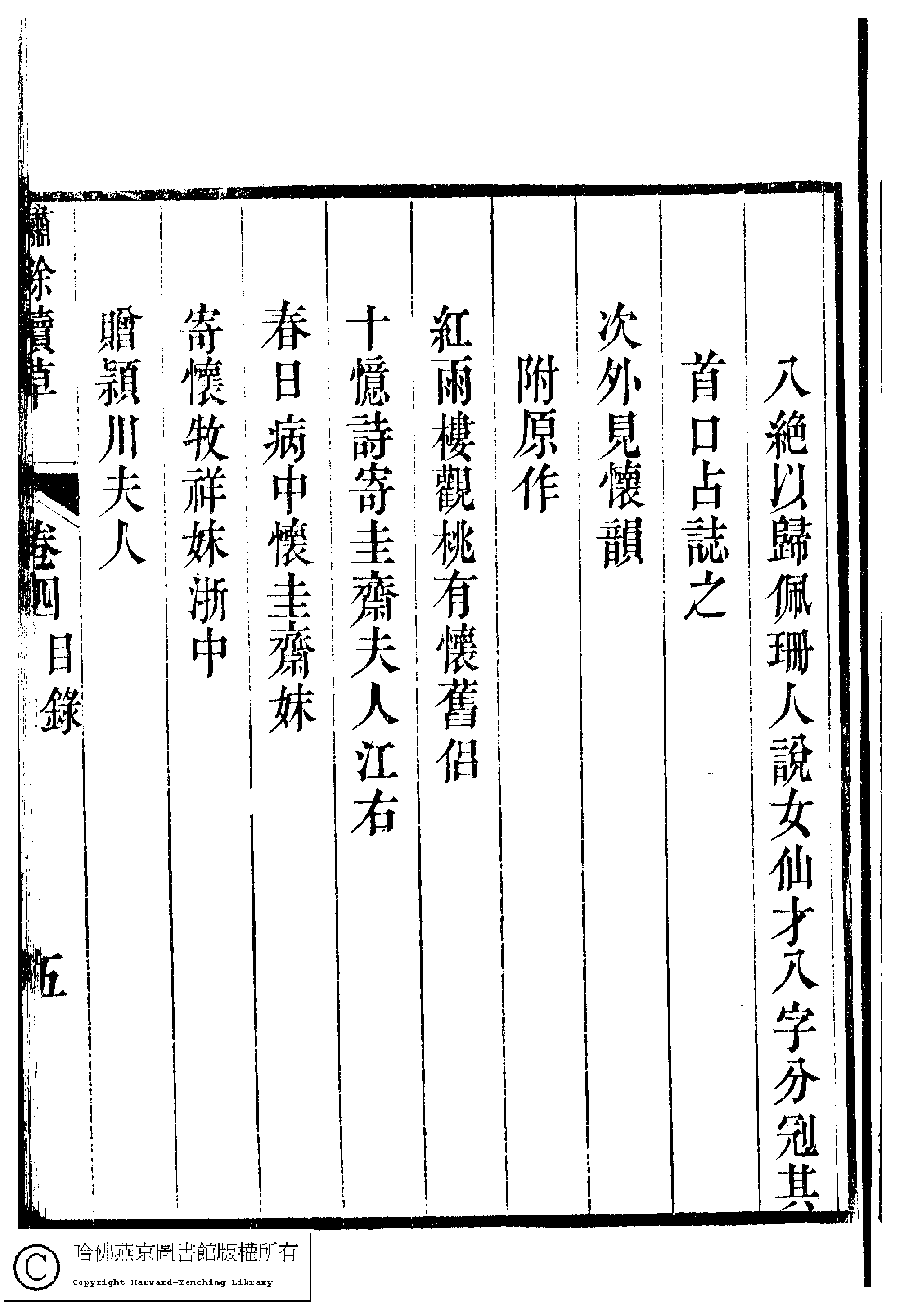 八絕以歸佩珊人說女仙才八字分冠其
首口占誌之
次外見懷韻
附原作
紅雨樓觀桃有懷舊侶
十憶詩寄圭齋夫人江右
春日病中懷圭齋妹
寄懷牧祥妹浙中
贈穎川夫人
餘續草
卷四目錄
五
哈佛燕京圖書館版權所有
Copyright Harvard-Yenching Library